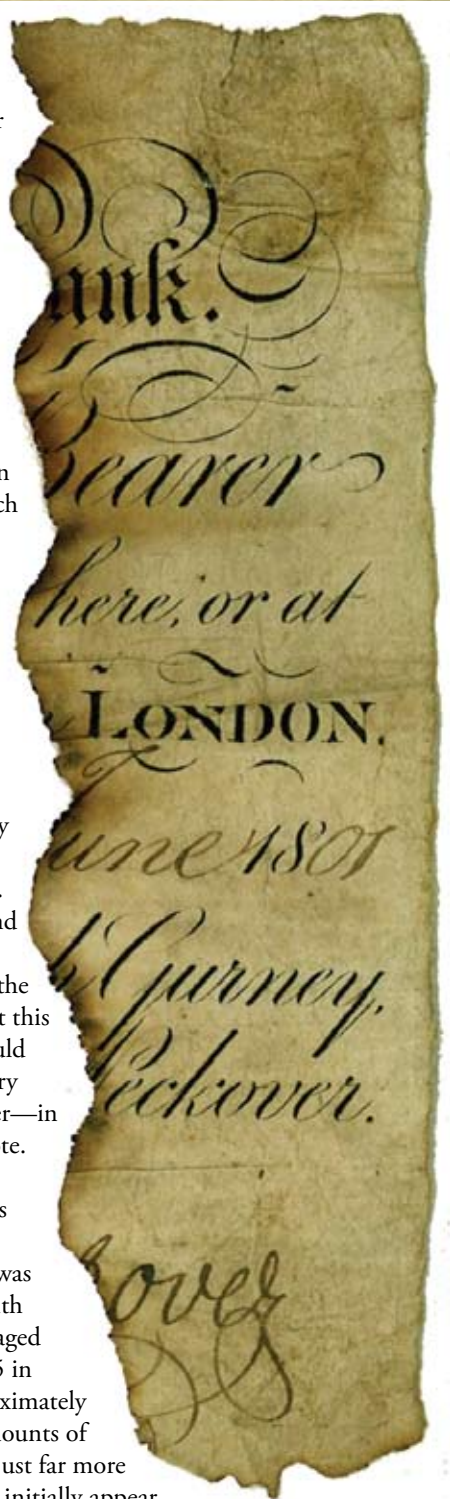 r
n
ch
y
.
nd
the
t this
uld
ry
er—in
te.
s
was
th
aged
5 in
ximately
ounts of
ust far more
initially appear
ank.
Bearer
here, or at
LONDON.
June 1801
Gurney,
Peckover.
over